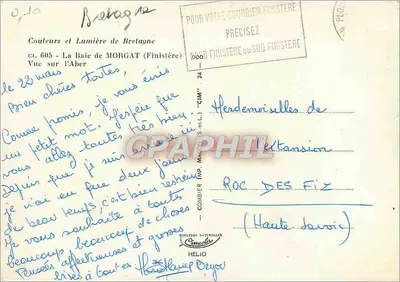 0,10
Bretagne
POUR VOTRE COURRIER FINISTERE
PRECISEZ
NORD FINISTERE ou SUD FINISTERE
Couleurs et Lumière de Bretagne
CL. 605 - La Baie de MORGAT (Finistère)
Vue sur l'Aber
le 22 mars
Bien chères toutes,
Comme promis, je vous écris
un petit mot. J'espère que
vous allez toutes très bien
Depuis que je suis arrivée ici
je n'ai eu que deux jours
de beau temps c'est bien
Je vous souhaite à toutes
beaucoup beaucoup de choses
Pensées affectueuses et grosses
bises à toutes
Mesdemoiselles de
ROC DES FIZ
(Haute Savoie)
COMBIER IMP. MACON (S.-&-L.) "CIM"
COULEURS NATURELLES
Combier
HELIO
DELCAMPE